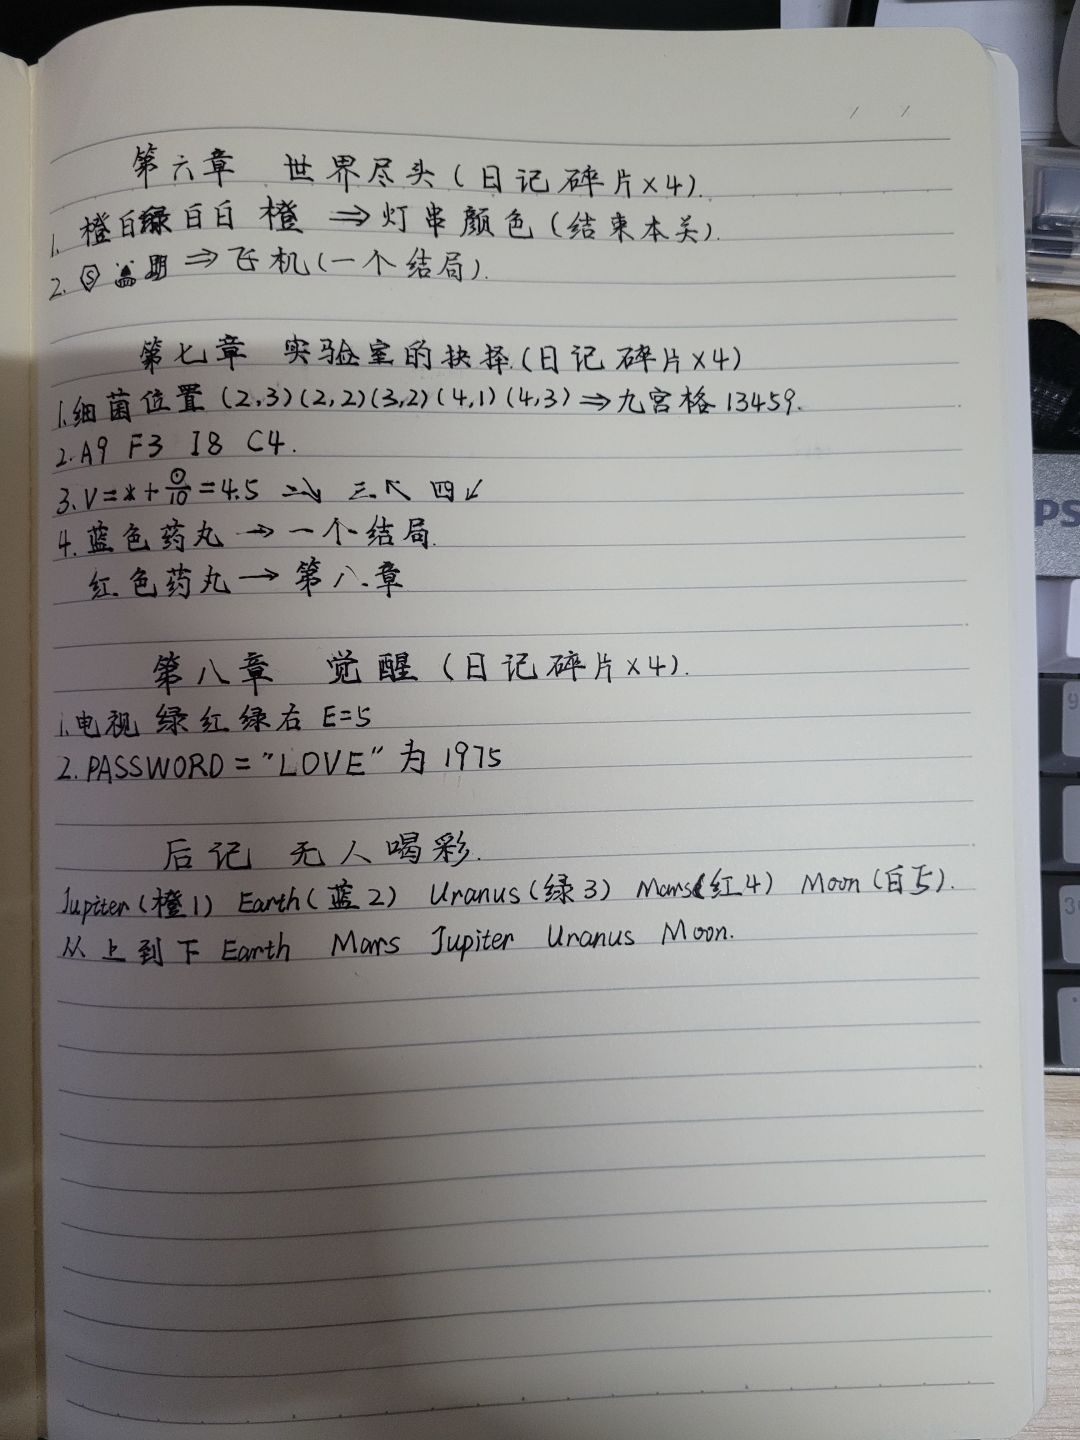 第六章 世界尽头(日记碎片×4).
1. 橙白绿白白 橙 ⇒灯串颜色(结束本关).
2. Ⓢ ⇒飞机(一个结局).
第七章 实验室的抉择.(日记碎片×4)
1.细菌位置 (2,3)(2,2)(3,2)(4,1)(4,3)⇒九宫格 13459.
2.A9 F3 I8 C4.
3.V=*+⊙/10=4.5 二↘ 三↖ 四↙
4.蓝色药丸 → 一个结局.
红色药丸 → 第八章
第八章 觉醒(日记碎片×4).
1.电视 绿红绿右 E=5
2.PASSWORD="LOVE" 为 1975
后记 无人喝彩.
Jupiter(橙1) Earth(蓝2) Uranus(绿3) Mars(红4) Moon(白5).
从上到下 Earth Mars Jupiter Uranus Moon.
PS
9
3